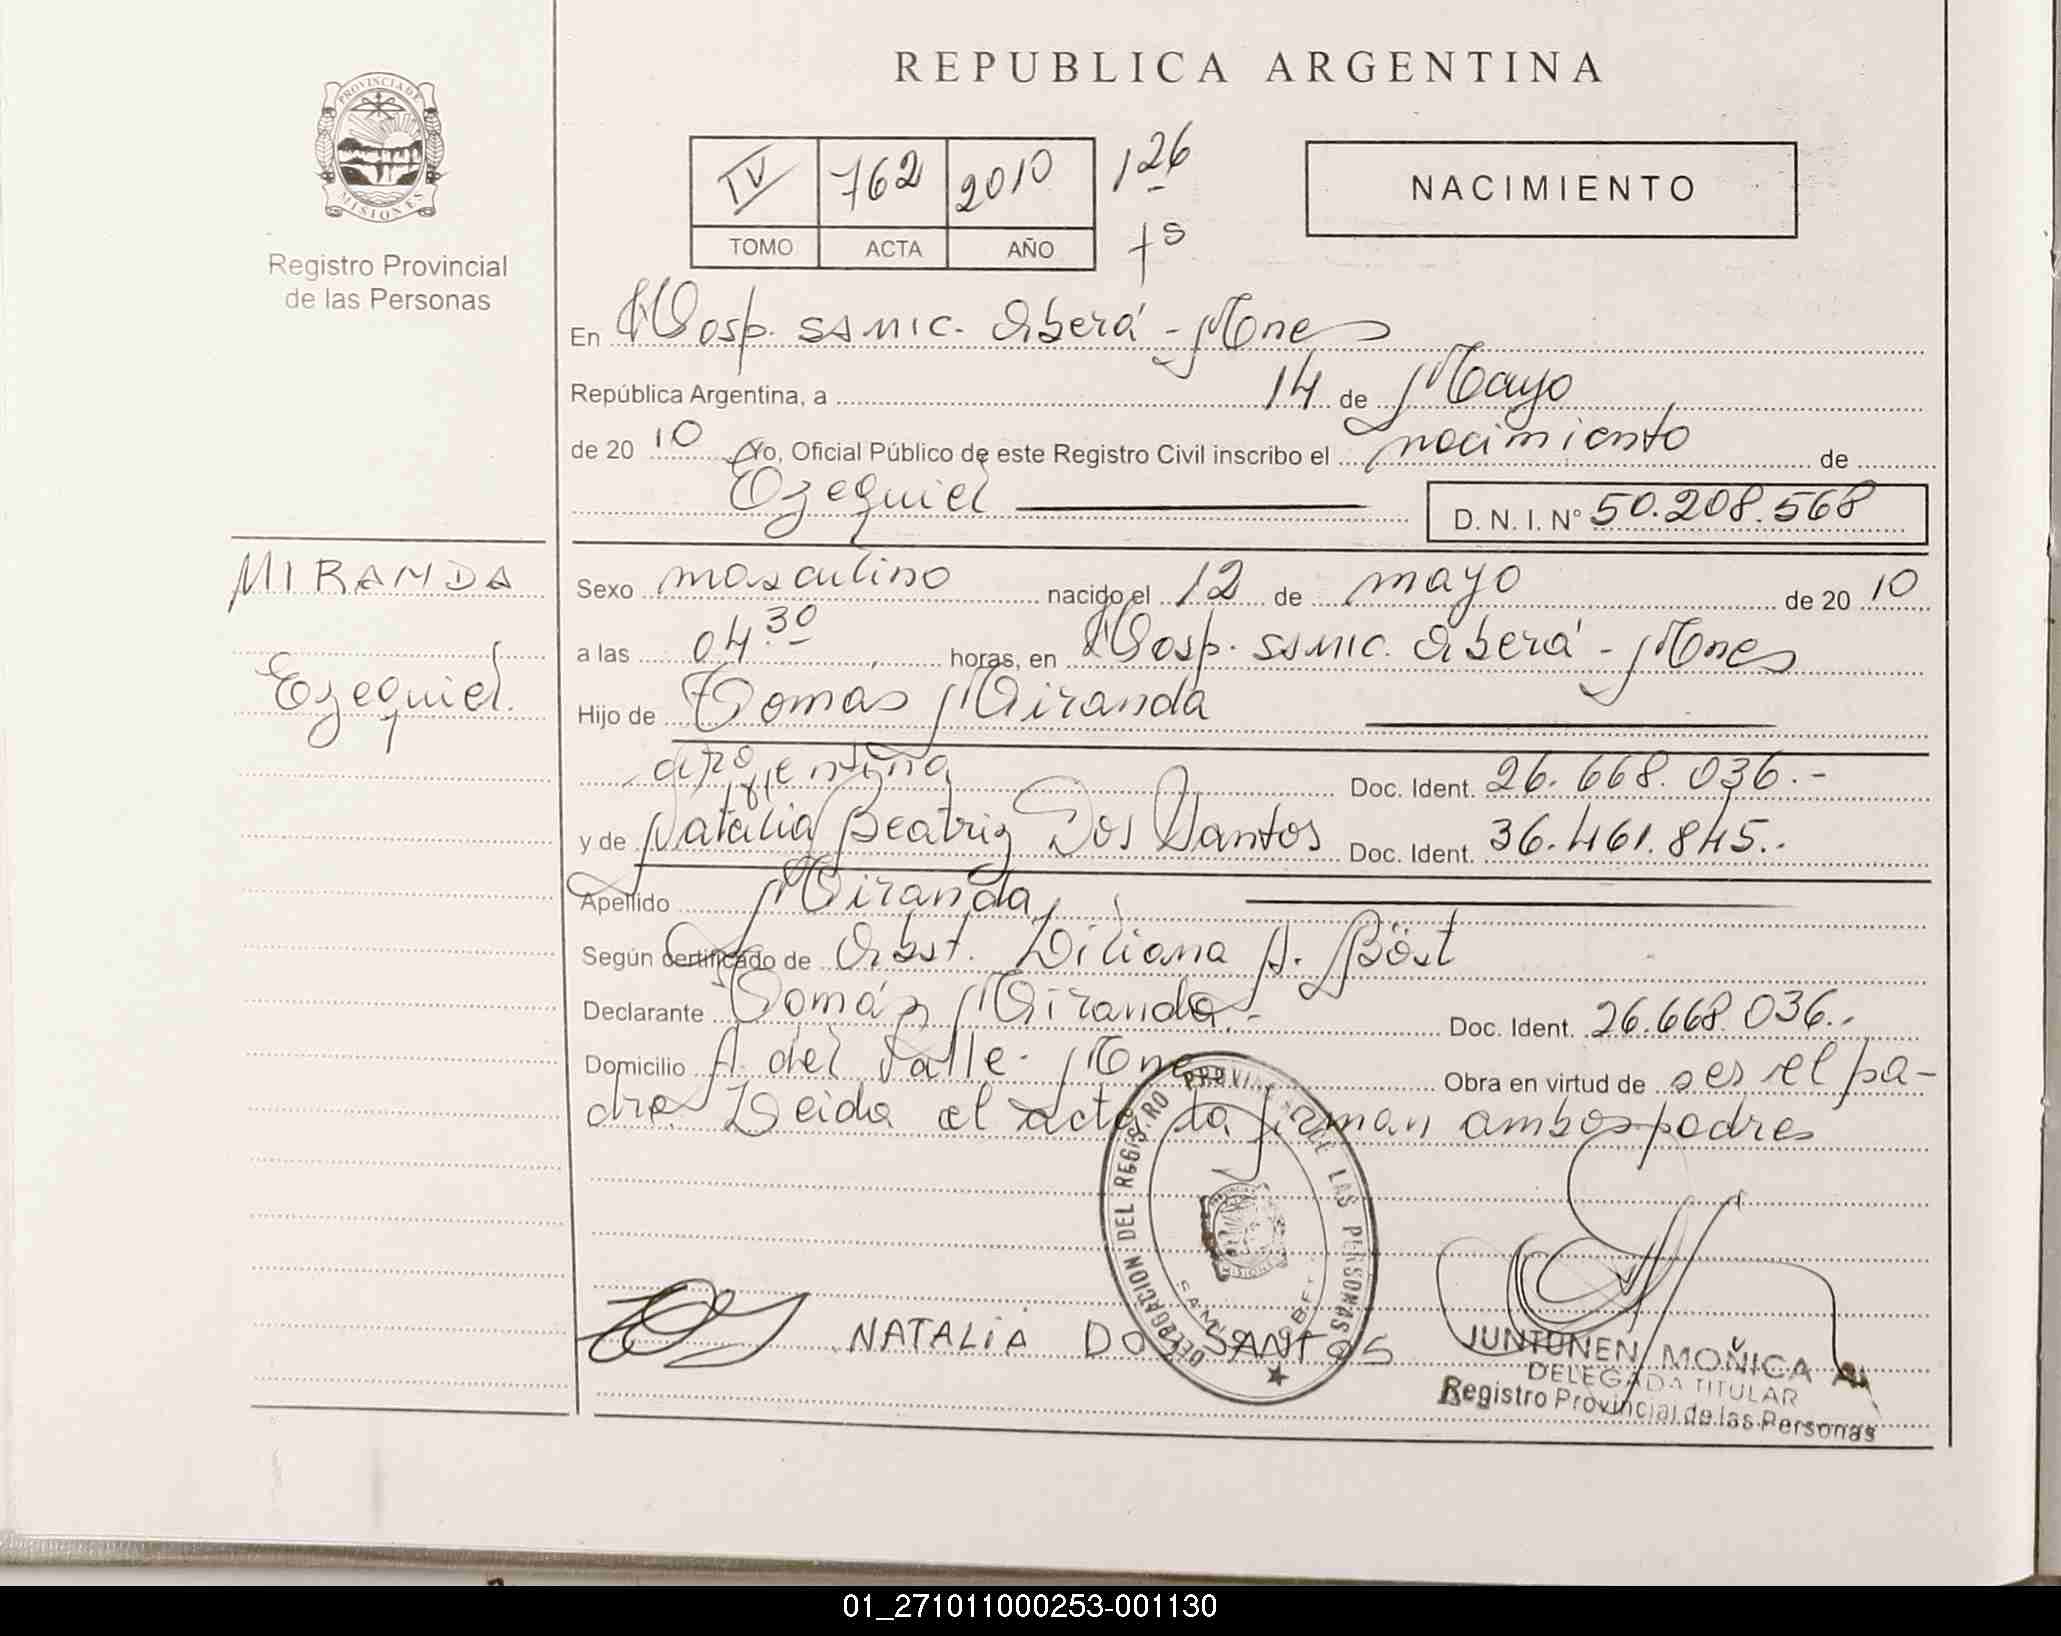 REPUBLICA ARGENTINA
PROVINCIA DE
MISIONES
Registro Provincial
de las Personas
IV 762 2010 126
TOMO ACTA AÑO fs
NACIMIENTO
En Hosp. SAMIC. Oberá - Mnes
República Argentina, a 14 de Mayo
de 20 10 Yo, Oficial Público de este Registro Civil inscribo el nacimiento de
Ezequiel D. N. I. Nº 50.208.568
MIRANDA
Ezequiel.
Sexo masculino nacido el 12 de mayo de 20 10
a las 04 30 horas, en Hosp. SAMIC. Oberá - Mnes
Hijo de Tomás Miranda
argentina Doc. Ident. 26.668.036.-
y de Natalia Beatriz Dos Santos Doc. Ident. 36.461.845..
Apellido Miranda
Según certificado de Obst. Liliana A. Böst
Declarante Tomás Miranda.- Doc. Ident. 26.668.036..
Domicilio A. del Valle - Mnes Obra en virtud de ser el pa-
dre. Leida el acta la firman ambos padres
DELEGACION DEL REGISTRO PROVINCIAL DE LAS PERSONAS
MISIONES
NATALIA DOS SANTOS
JUNTUNEN, MONICA A.
DELEGADA TITULAR
Registro Provincial de las Personas
01_271011000253-001130